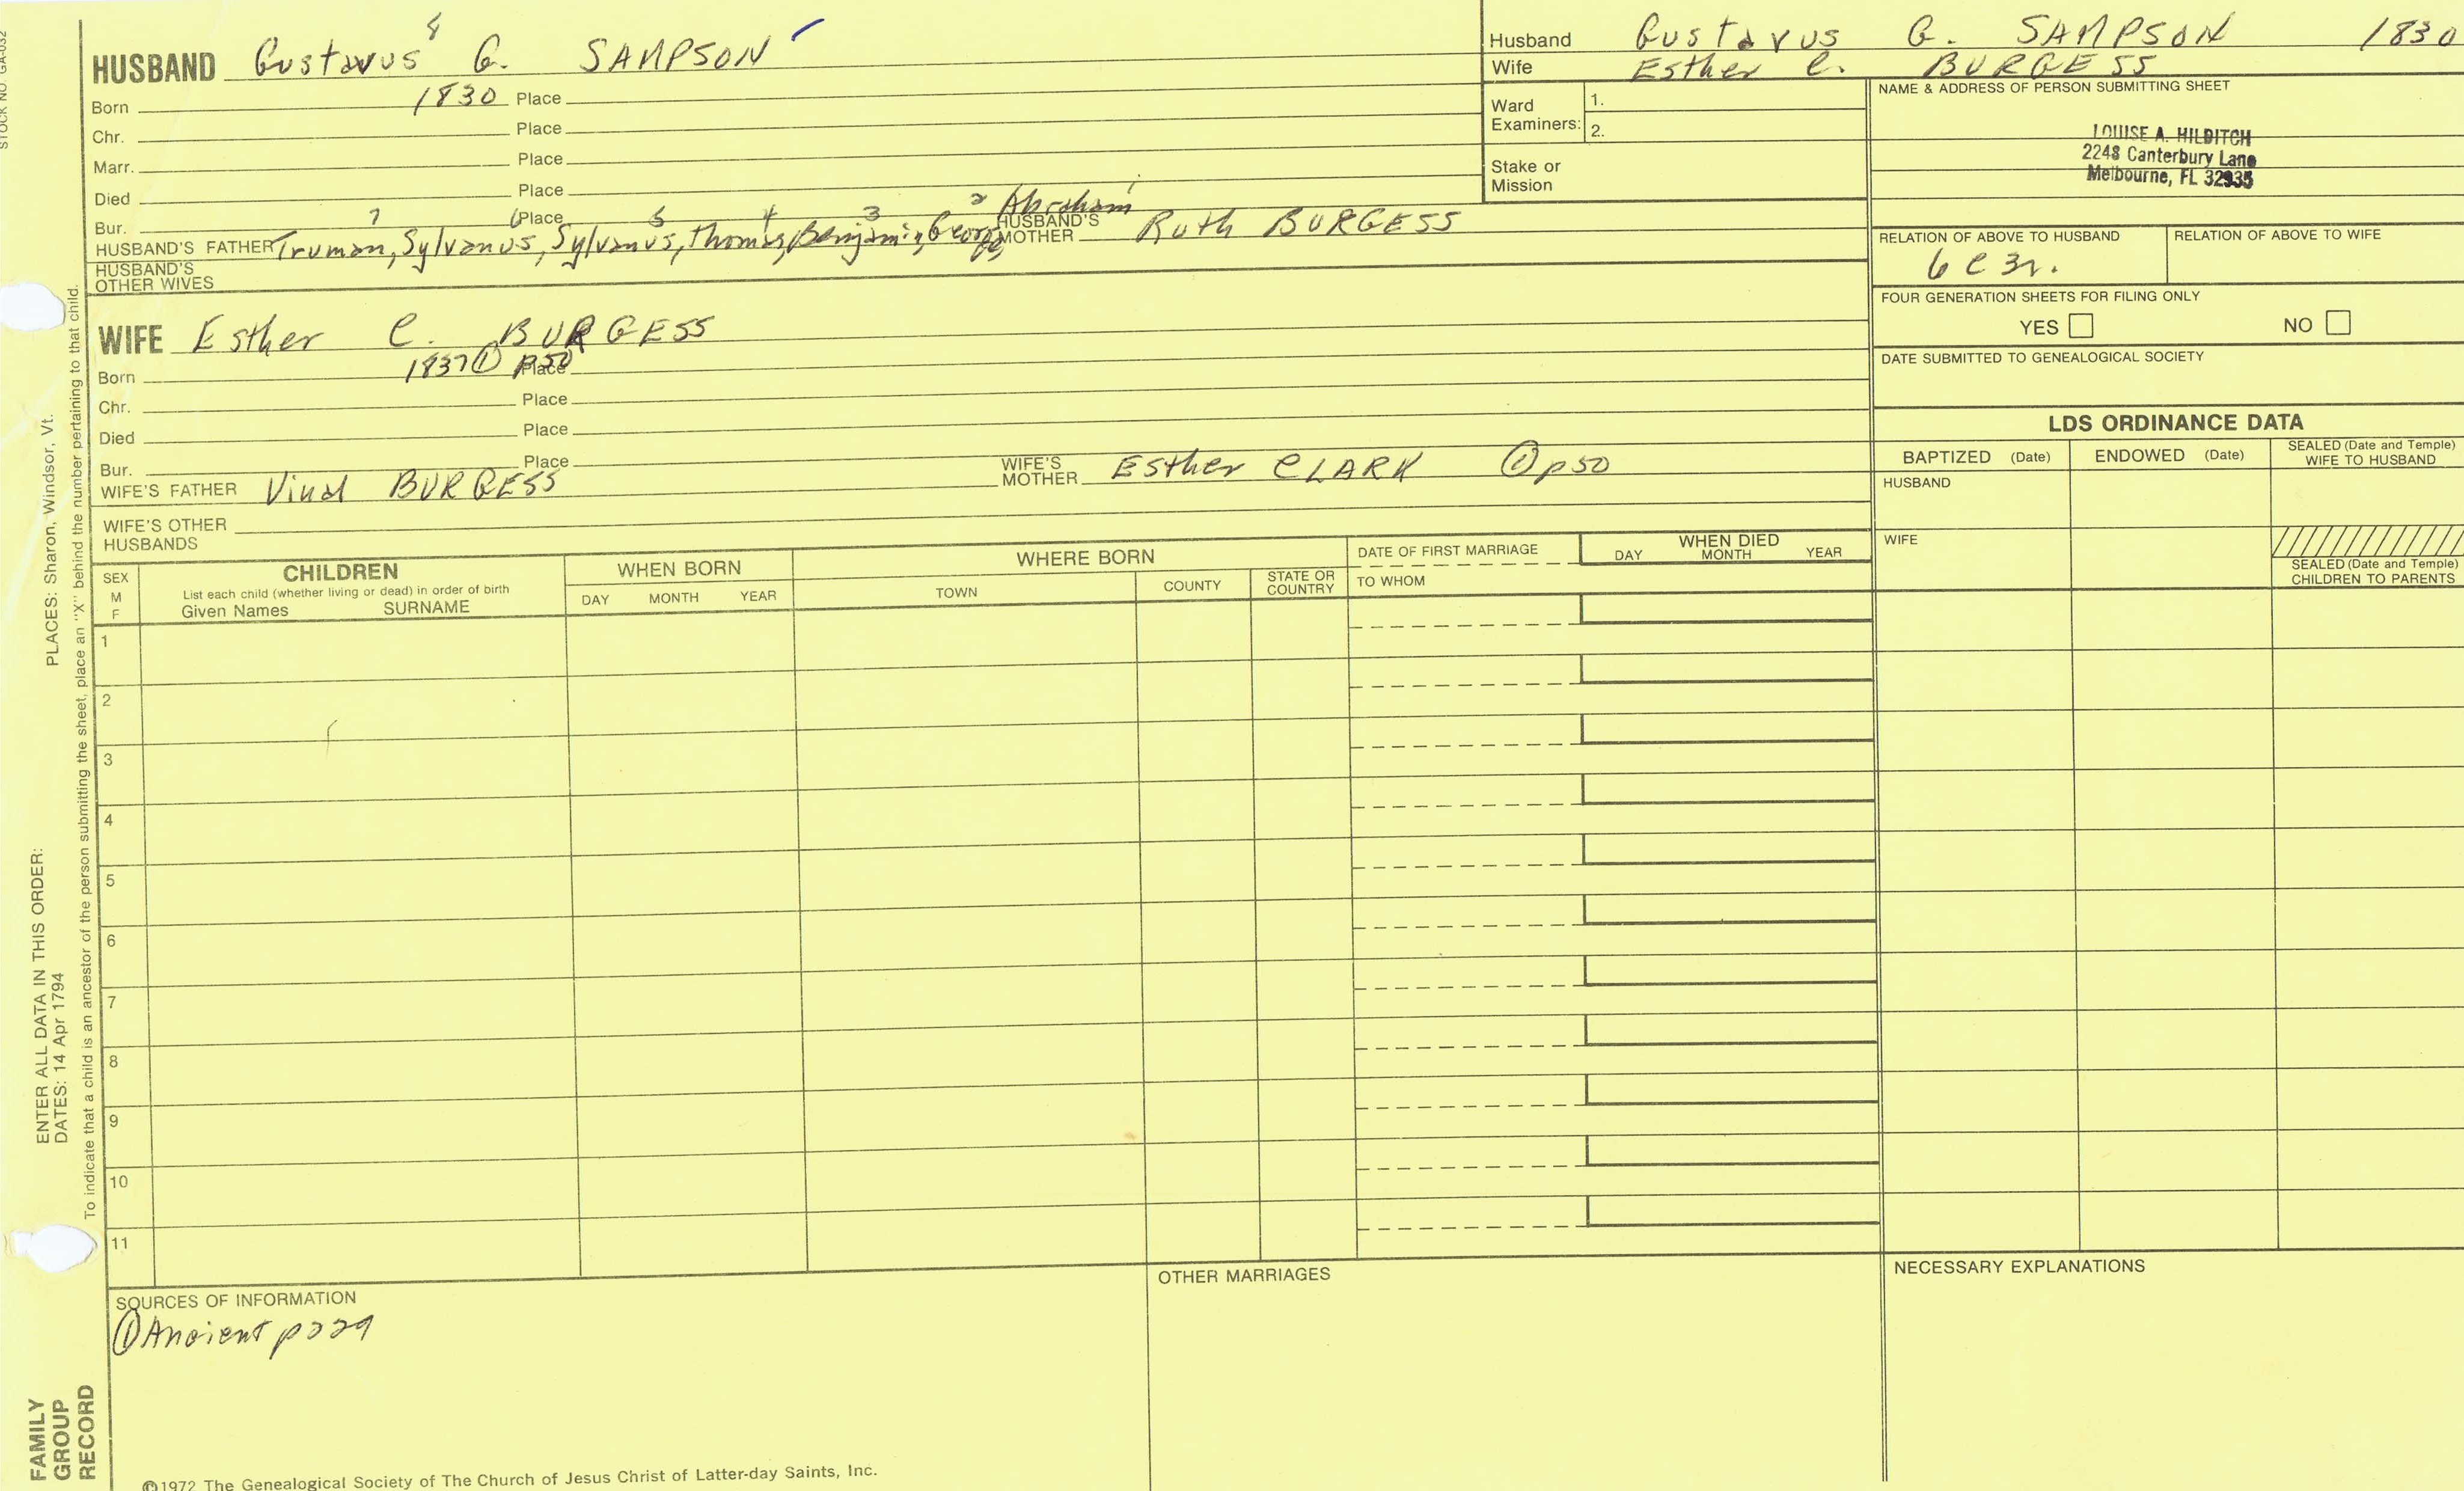 STOCK NO GA-032
HUSBAND Gustavus 8 G. SAMPSON
Born 1830 Place
Chr. Place
Marr. Place
Died Place
Bur. Place
HUSBAND'S FATHER Truman, 7 Sylvanus, 6 Sylvanus, 5 Thomas, 4 Benjamin, 3 George, 2 Abraham 1
HUSBAND'S MOTHER Ruth BURGESS
HUSBAND'S OTHER WIVES
WIFE Esther C. BURGESS
Born 1837 ① p50 Place
Chr. Place
Died Place
Bur. Place
WIFE'S FATHER Vinal BURGESS
WIFE'S MOTHER Esther CLARK ① p50
WIFE'S OTHER HUSBANDS
Husband Gustavus G. SAMPSON 1830
Wife Esther C. BURGESS
Ward Examiners: 1.
2.
Stake or Mission
NAME & ADDRESS OF PERSON SUBMITTING SHEET
LOUISE A. HILDITCH
2248 Canterbury Lane
Melbourne, FL 32935
RELATION OF ABOVE TO HUSBAND
6C3r.
RELATION OF ABOVE TO WIFE
FOUR GENERATION SHEETS FOR FILING ONLY
YES NO
DATE SUBMITTED TO GENEALOGICAL SOCIETY
LDS ORDINANCE DATA
BAPTIZED (Date) ENDOWED (Date) SEALED (Date and Temple) WIFE TO HUSBAND
HUSBAND
WIFE
SEALED (Date and Temple) CHILDREN TO PARENTS
SEX M F
CHILDREN
List each child (whether living or dead) in order of birth
Given Names SURNAME
WHEN BORN
DAY MONTH YEAR
WHERE BORN
TOWN COUNTY STATE OR COUNTRY
DATE OF FIRST MARRIAGE
TO WHOM
WHEN DIED
DAY MONTH YEAR
1
2
3
4
5
6
7
8
9
10
11
SOURCES OF INFORMATION
① Ancient p229
OTHER MARRIAGES
NECESSARY EXPLANATIONS
©1972 The Genealogical Society of The Church of Jesus Christ of Latter-day Saints, Inc.
FAMILY GROUP RECORD
ENTER ALL DATA IN THIS ORDER:
DATES: 14 Apr 1794
PLACES: Sharon, Windsor, Vt.
To indicate that a child is an ancestor of the person submitting the sheet, place an "X" behind the number pertaining to that child.